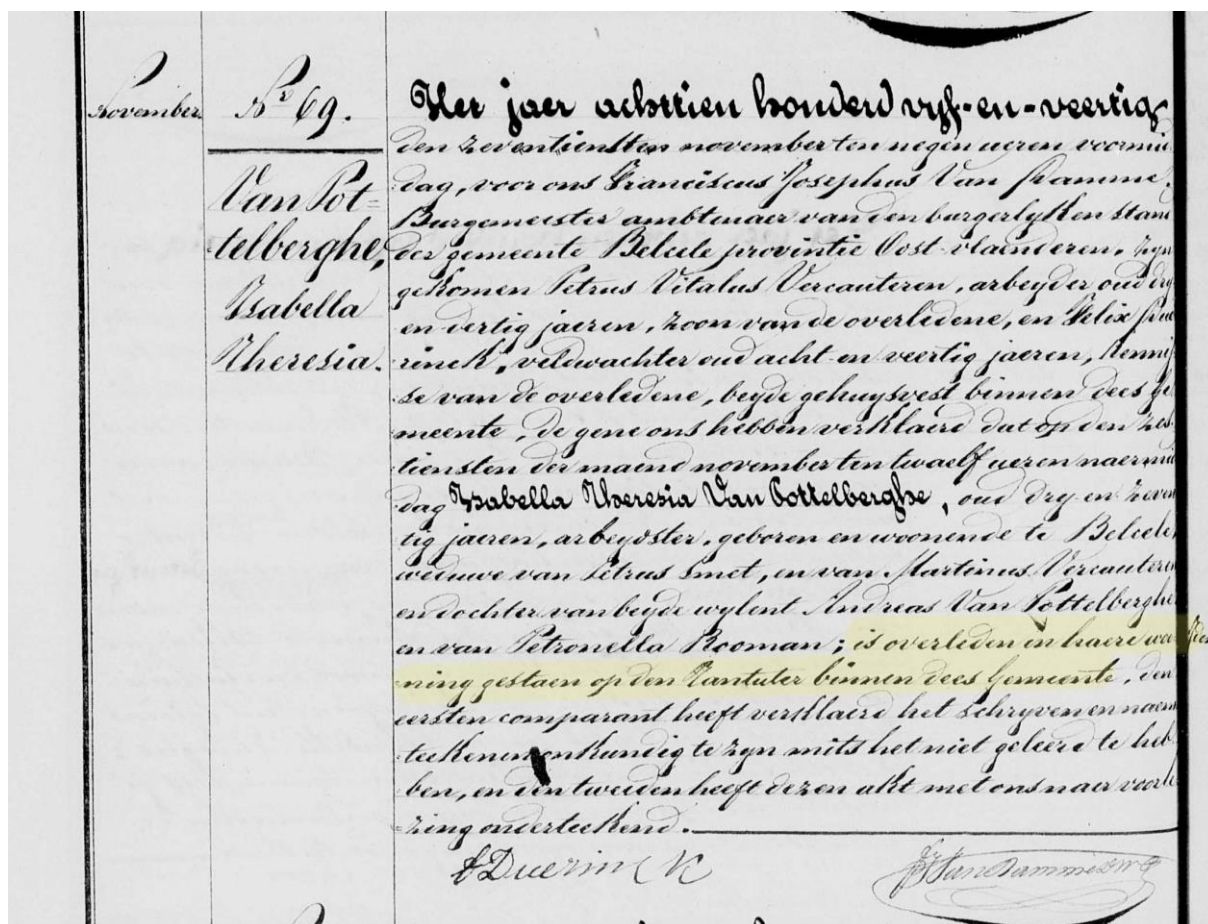 november
Nº 69.
Van Pot=
telberghe,
Isabella
Theresia.
Het jaer achttien honderd vyf-en-veertig
den zeventiensten november ten negen ueren voormid
dag, voor ons Franciscus Josephus Van Damme,
Burgemeester ambtenaer van den burgerlyken stand
der gemeente Belcele provintie Oost-vlaenderen, zyn
gekomen Petrus Vitalus Vercauteren, arbeyder oud dry
en dertig jaeren, zoon van de overledene, en Felix Due
rinck, veldwachter oud acht-en veertig jaeren, kennis
se van de overledene, beyde gehuysvest binnen dees ge
meente, de gene ons hebben verklaerd dat op den zes
tiensten der maend november ten twaelf ueren naermid
dag Isabella Theresia Van Pottelberghe, oud dry-en-zeven
tig jaeren, arbeydster, geboren en woonende te Belcele,
weduwe van Petrus Smet, en van Martinus Vercauteren
en dochter van beyde wylent Andreas Van Pottelberghe
en van Petronella Rooman; is overleden in haere woo
ning gestaen op den binnen dees Gemeente, den
eersten comparant heeft verklaerd het schryven en naem
teekenen onkundig te zyn mits het niet geleerd te heb
ben, en den tweeden heeft dezen akt met ons naer voorle
zing onderteekend.
F Duerinck